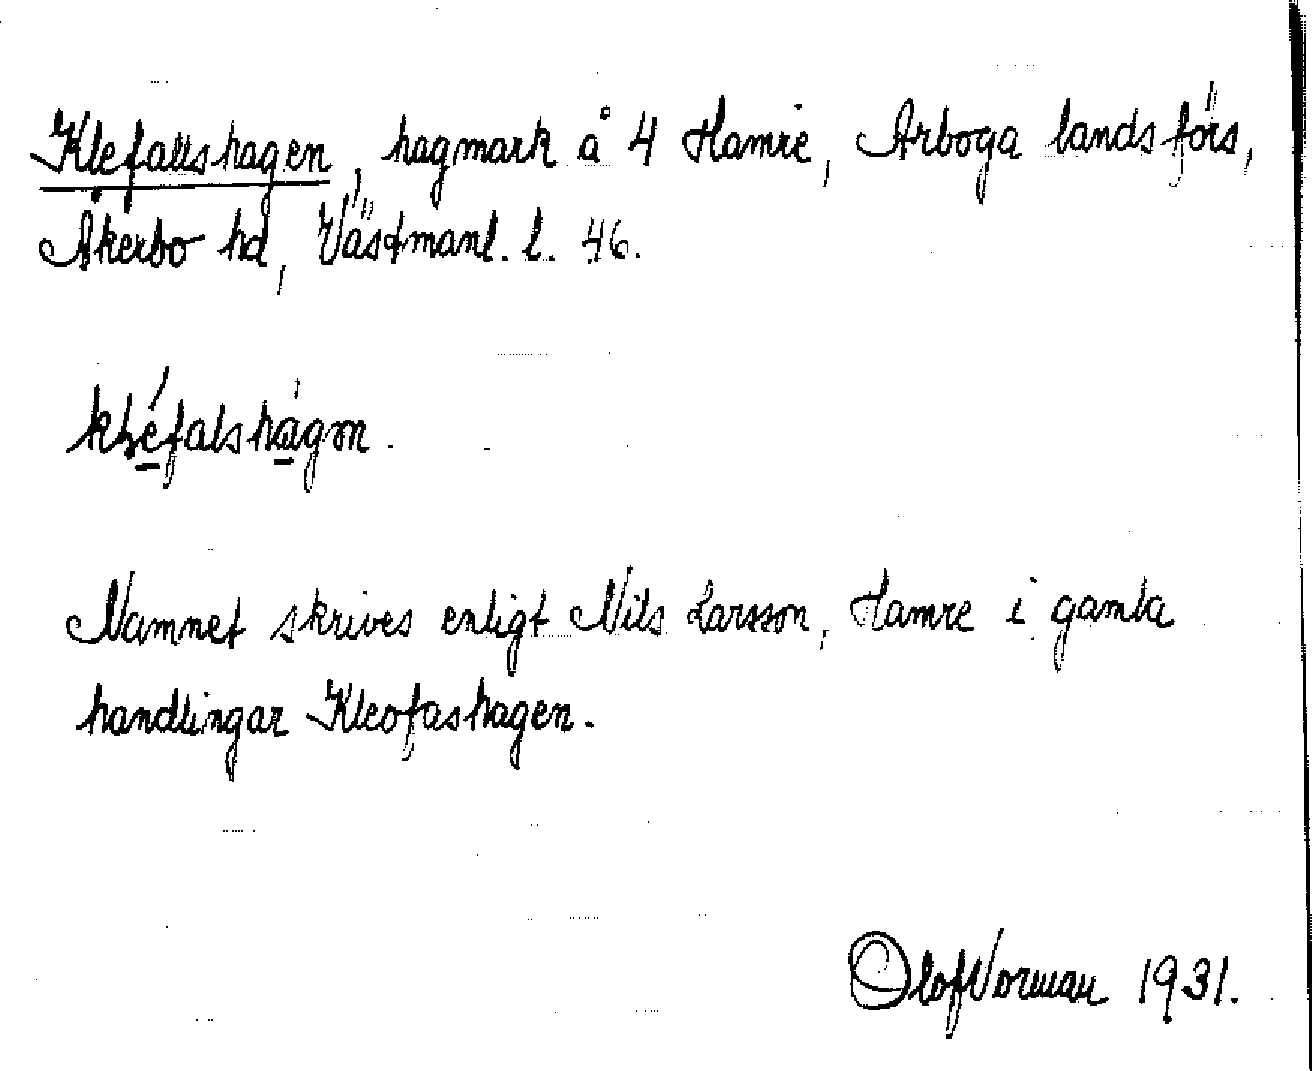 Klefallshagen, hagmark å 4 Hamre, Arboga landsförs,
Åkerbo hd, Västmanl. l. 46.
kléfalshàgɷn.
Namnet skrives enligt Nils Larsson, Hamre i gamla
handlingar Kleofashagen.
Olof Norman 1931.